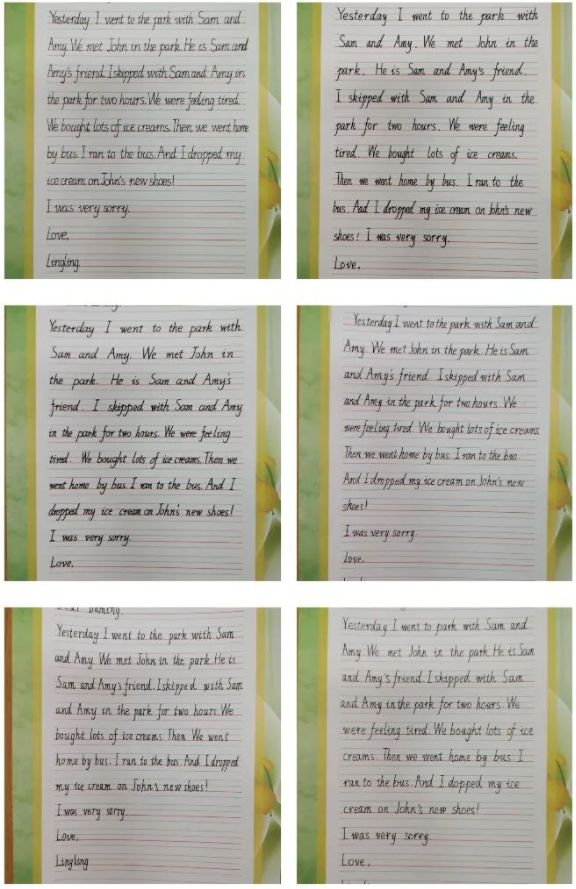 Yesterday I went to the park with Sam and
Amy. We met John in the park. He is Sam and
Amy's friend. I skipped with Sam and Amy in
the park for two hours. We were feeling tired.
We bought lots of ice creams. Then we went home
by bus. I ran to the bus. And I dropped my
ice cream on John's new shoes!
I was very sorry.
Love,
Lingling
Yesterday I went to the park with
Sam and Amy. We met John in the
park. He is Sam and Amy's friend.
I skipped with Sam and Amy in the
park for two hours. We were feeling
tired. We bought lots of ice creams.
Then we went home by bus. I ran to the
bus. And I dropped my ice cream on John's new
shoes! I was very sorry.
Love,
Yesterday I went to the park with
Sam and Amy. We met John in
the park. He is Sam and Amy's
friend. I skipped with Sam and Amy
in the park for two hours. We were feeling
tired. We bought lots of ice creams. Then we
went home by bus. I ran to the bus. And I
dropped my ice cream on John's new shoes!
I was very sorry.
Love,
Yesterday I went to the park with Sam and
Amy. We met John in the park. He is Sam
and Amy's friend. I skipped with Sam
and Amy in the park for two hours. We
were feeling tired. We bought lots of ice creams
Then we went home by bus. I ran to the bus.
And I dropped my ice cream on John's new
shoes!
I was very sorry.
Love,
Daming.
Yesterday I went to the park with Sam
and Amy. We met John in the park. He is
Sam and Amy's friend. I skipped with Sam
and Amy in the park for two hours. We
bought lots of ice creams. Then We went
home by bus. I ran to the bus. And I dropped
my ice cream on John's new shoes!
I was very sorry.
Love,
Lingling
Yesterday I went to park with Sam and
Amy. We met John in the park. He is Sam
and Amy's friend. I skipped with Sam
and Amy in the park for two hours. We
were feeling tired. We bought lots of ice
creams. Then we went home by bus. I
ran to the bus. And I dopped my ice
cream on John's new shoes!
I was very sorry.
Love,